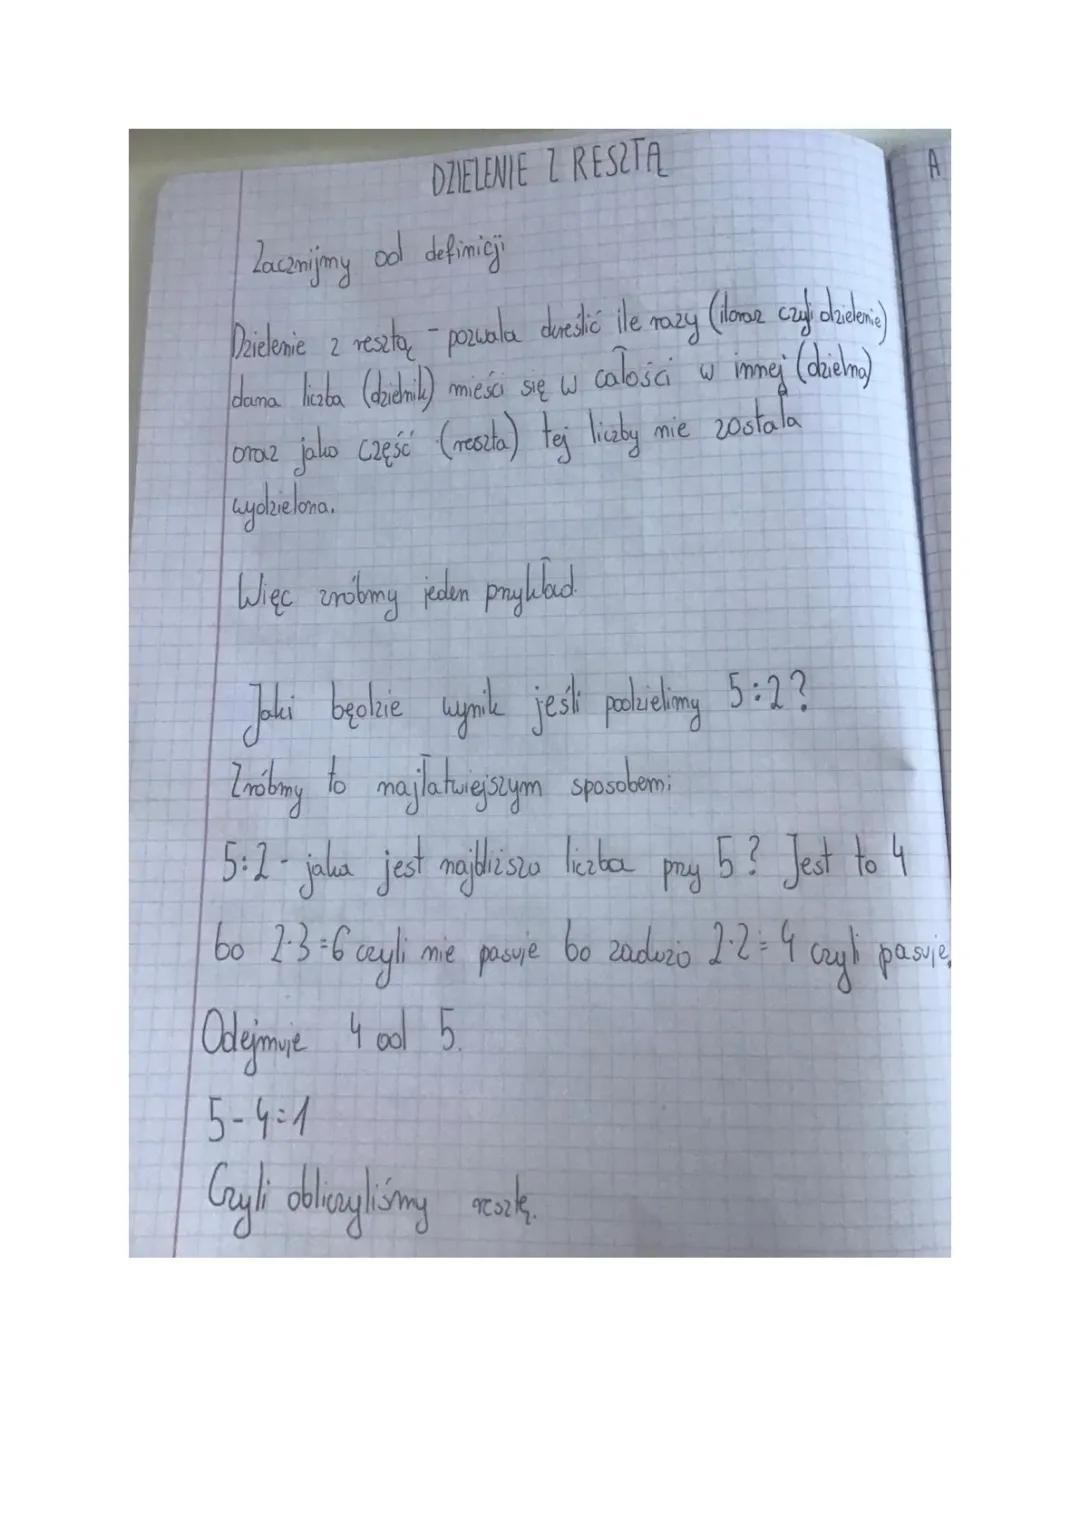 DZIELENIE Z RESZTĄ
A
Zacznijmy od definicji
Dzielenie z resztą - pozwala określić ile razy (iloraz czyli dzielenie)
dana liczba (dzielnik) mieści się w całości w innej (dzielna)
oraz jako część (reszta) tej liczby nie została
wydzielona.
Więc zróbmy jeden przykład.
Jaki będzie wynik jeśli podzielimy 5:2?
Zróbmy to najłatwiejszym sposobem:
5:2 - jaka jest najbliższa liczba przy 5? Jest to 4
bo 2·3=6 czyli nie pasuje bo zadużo 2·2=4 czyli pasuje.
Odejmuje 4 od 5.
5-4=1
Czyli obliczyliśmy resztę.